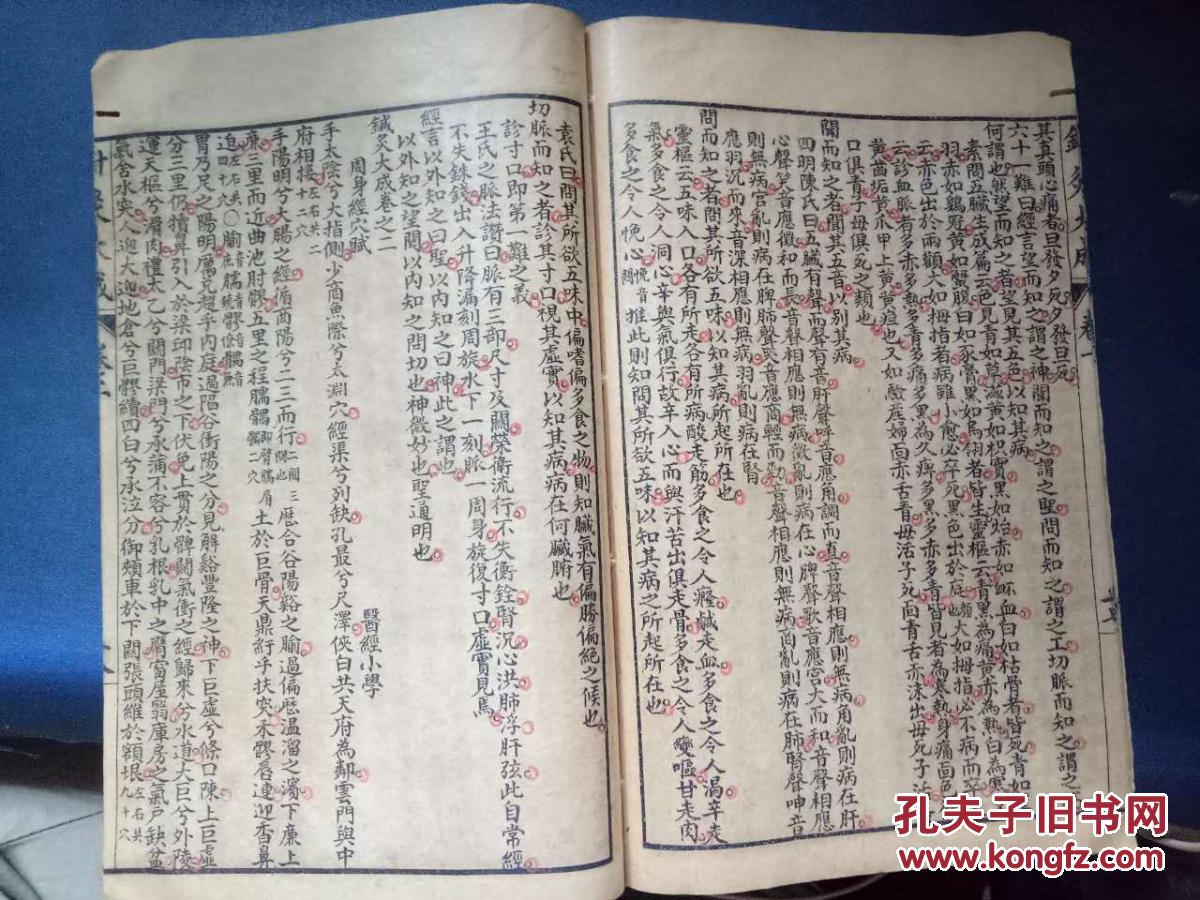 其真頭心痛者旦發夕死夕發旦死
六十一難曰經言望而知之謂之神聞而知之謂之聖問而知之謂之工切脈而知之謂之
何謂也然望而知之者望見其五色以知其病
素問五臟生成篇云色見青如草滋黃如枳實黑如炲赤如衃血白如枯骨者皆死青如
羽赤如雞冠黃如蟹腹白如豕膏黑如烏翎者皆生靈樞云青黑為痛黃赤為熱白為寒
云赤色出於兩顴大如拇指者病雖小愈必卒死黑色出於庭顏也大如拇指必不病而卒
云診血脈者多赤多熱多青多痛多黑為久痹多黑多赤多青皆見者為寒熱身痛面色
黃齒垢黃爪甲上黃黃疸也又如驗產婦面赤舌青母活子死面青舌赤沫出母死子活
口俱青子母俱死之類也
聞而知之者聞其五音以別其病
四明陳氏曰五臟有聲而聲有音肝聲呼音應角調而直音聲相應則無病角亂則病在肝
心聲笑音應徵和而長音聲相應則無病徵亂則病在心脾聲歌音應宮大而和音聲相應
則無病宮亂則病在脾肺聲哭音應商輕而勁音聲相應則無病商亂則病在肺腎聲呻音
應羽沉而深音聲相應則無病羽亂則病在腎
問而知之者問其所欲五味以知其病所起所在也
靈樞云五味入口各有所走各有所病酸走筋多食之令人癃鹹走血多食之令人渴辛走
氣多食之令人洞心辛與氣俱行故辛入心而與汗苦出俱走骨多食之令人變嘔甘走肉
多食之令人悗心悗音悶推此則知問其所欲五味以知其病之所起所在也
袁氏曰問其所欲五味中偏嗜偏多食之物則知臟氣有偏勝偏絕之候也
切脈而知之者診其寸口視其虛實以知其病病在何臟腑也
診寸口即第一難之義
王氏之脈法讚曰脈有三部尺寸及關榮衛流行不失衡銓腎沉心洪肺浮肝弦此自常經
不失銖錢出入升降漏刻周旋水下一刻脈一周身旋復寸口虛實見焉
經言以外知之曰聖以內知之曰神此之謂也
以外知之望聞以內知之問切也神微妙也聖通明也
鍼灸大成卷之二
周身經穴賦 醫經小學
手太陰兮大指側少商魚際兮太淵穴經渠兮列缺孔最兮尺澤俠白共天府為鄰雲門與中
府相接左右共二十二穴
手陽明兮大腸之經循商陽兮二三而行二間三間也歷合谷陽谿之腧過偏歷溫溜之濱下廉上
廉三里而近曲池肘髎五里之程臑髃臂臑肩髃二穴上於巨骨天鼎紆乎扶突禾髎唇連迎香鼻
迫左右共四十穴
胃乃足之陽明厲兌趨乎內庭過陷谷衝陽之分見解谿豐隆之神下巨虛兮條口陳上巨虛
分三里仍犢鼻引入於梁邱陰市之下伏兔上貫於髀關氣衝之經歸來兮水道大巨兮外陵
運天樞兮滑肉禮太乙兮關門梁門兮承滿不容兮乳根乳中之膺窗屋翳庫房之氣戶缺盆
氣舍水突人迎大迎地倉兮巨髎續四白兮承泣分御頰車於下關張頭維於額垠左右共九十穴